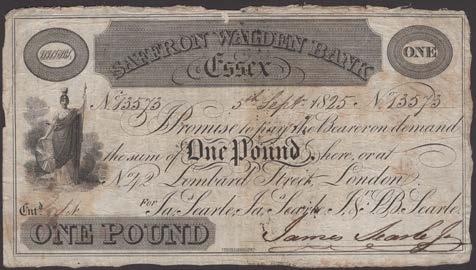 SAFFRON WALDEN BANK
ONE
Essex
No. 13573 5th Sept. 1825 No. 13573
I Promise to pay the Bearer on demand
the sum of One Pound, here, or at
No. 42 Lombard Street, London.
For Ja. Searle, Ja. Searle Jr. & Searle.
Entd.
ONE POUND
James Searle Jr